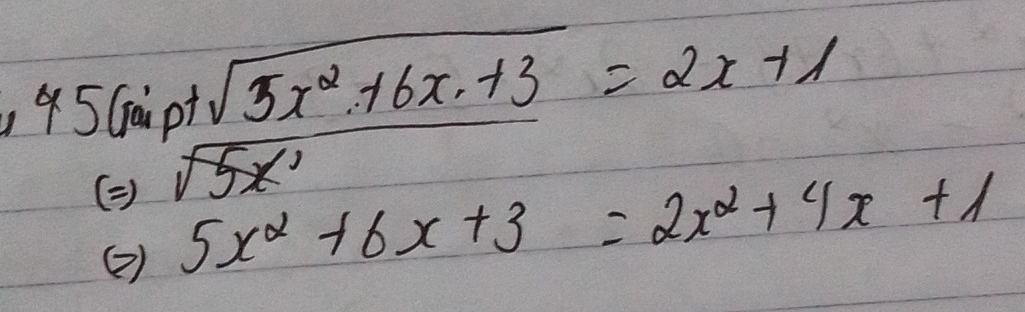 45 Giải pt √5x² + 6x + 3 = 2x + 1
(=) √5x²
(=) 5x² + 6x + 3 = 2x² + 4x + 1